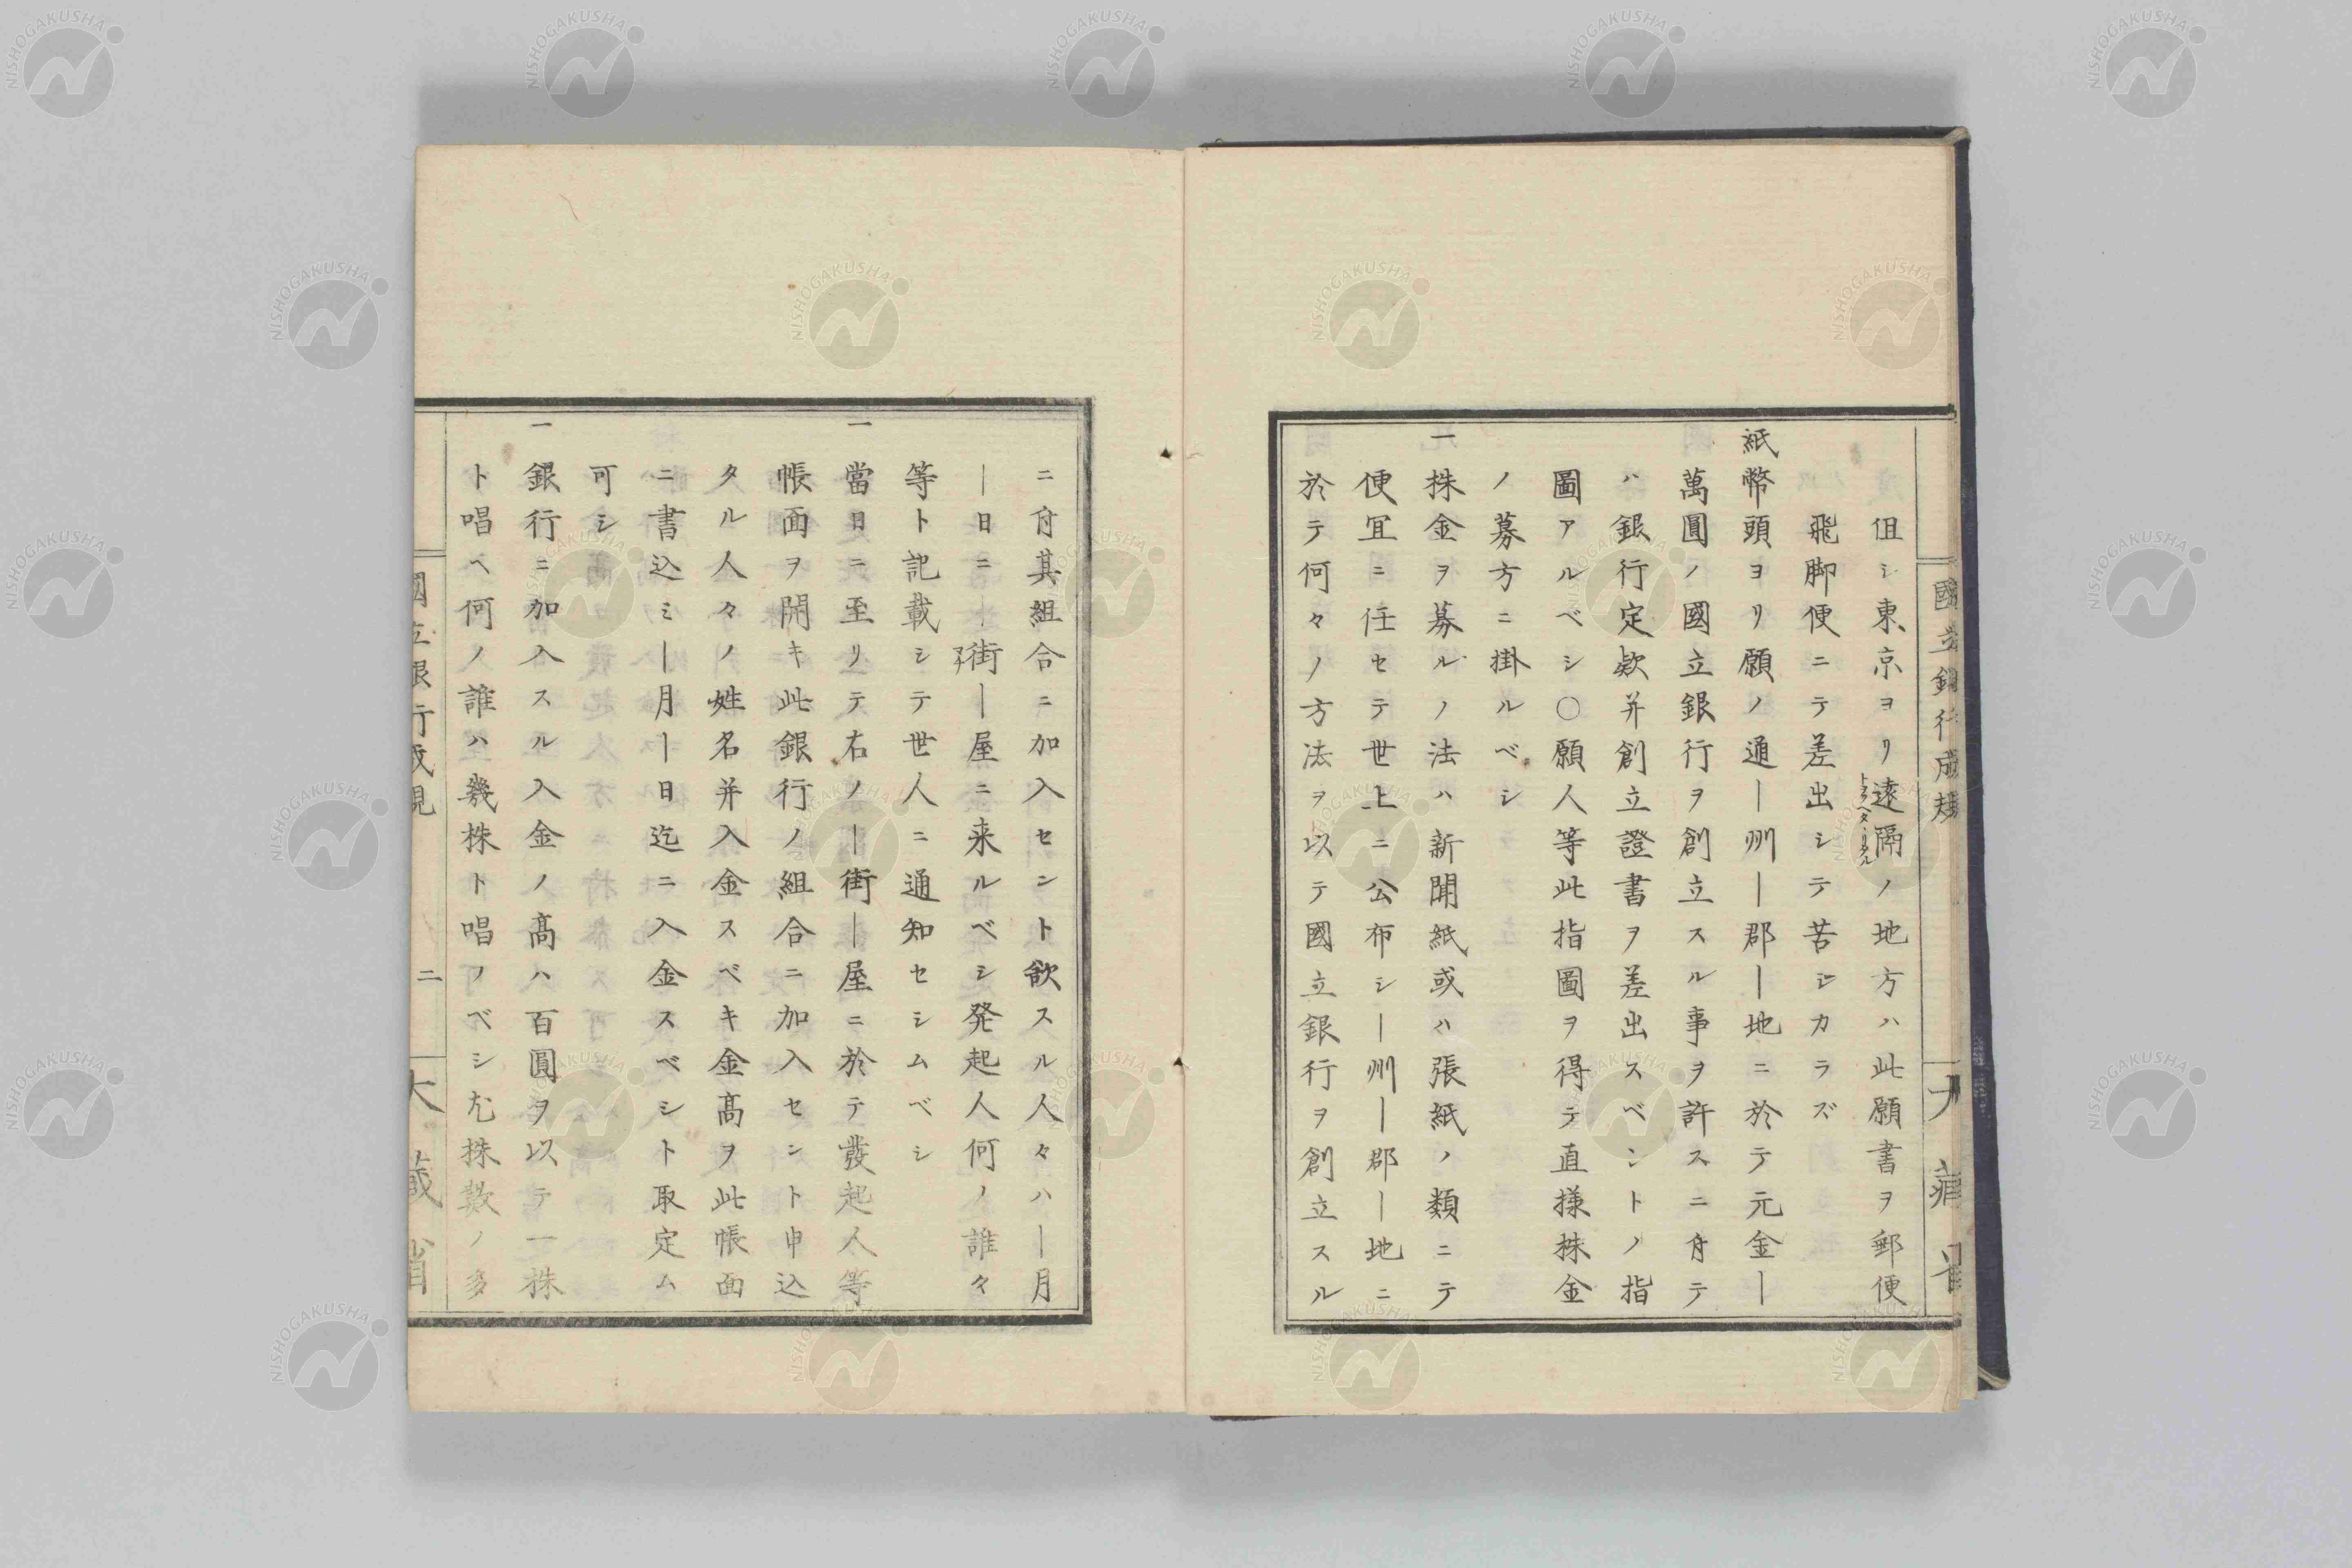 國立銀行成規
大藏省
但シ東京ヨリ遠隔ノ地方ハ此願書ヲ郵便
トヲクヘダヽリタル
飛脚便ニテ差出シテ苦シカラズ
紙幣頭ヨリ願ノ通―州―郡―地ニ於テ元金―
萬圓ノ國立銀行ヲ創立スル事ヲ許スニ付テ
ハ銀行定款并創立證書ヲ差出スベントノ指
圖アルベシ○願人等此指圖ヲ得テ直様株金
ノ募方ニ掛ルベシ
一株金ヲ募ルノ法ハ新聞紙或ハ張紙ノ類ニテ
便宜ニ任セテ世上ニ公布シ―州―郡―地ニ
於テ何々ノ方法ヲ以テ國立銀行ヲ創立スル
ニ付其組合ニ加入セント欲スル人々ハ―月
―日ニ―街―屋ニ来ルベシ発起人何ノ誰々
等ト記載シテ世人ニ通知セシムベシ
一當日ニ至リテ右ノ―街―屋ニ於テ發起人等
帳面ヲ開キ此銀行ノ組合ニ加入セント申込
タル人々ノ姓名并入金スベキ金髙ヲ此帳面
ニ書込ミ―月―日迄ニ入金スベシト取定ム
可シ
一銀行ニ加入スル入金ノ髙ハ百圓ヲ以テ一株
ト唱ヘ何ノ誰ハ幾株ト唱フベシ尤株数ノ多
國立銀行成規
二
大藏省
NISHOGAKUSHA